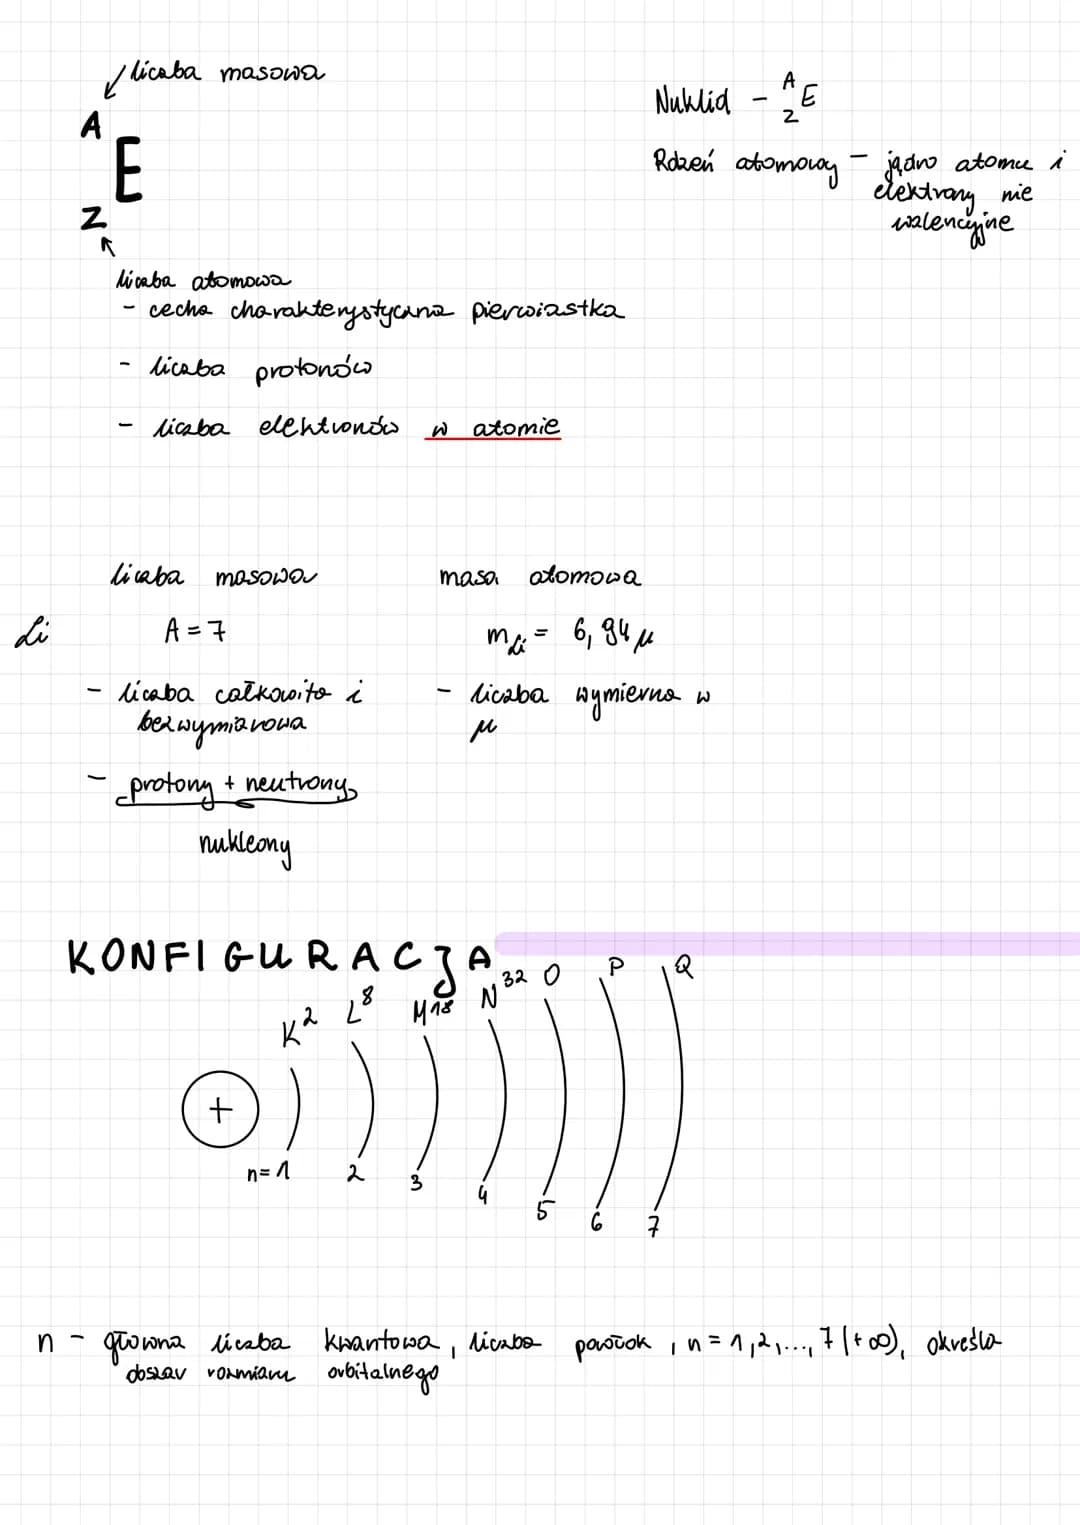 liczba masowa
A
E
Z
liczba atomowa
- cecha charakterystyczna pierwiastka
- liczba protonów
- liczba elektronów w atomie
Nuklid - A Z E
Rdzeń atomowy - jądro atomu i
elektrony nie
walencyjne
liczba masowa masa atomowa
Li A = 7 mLi = 6,94 μ
- liczba całkowita i - liczba wymierna w
bezwymiarowa μ
- protony + neutrony
nukleony
KONFIGURACJA
K² L⁸ M¹⁸ N³² O P Q
+
n=1 2 3 4 5 6 7
n - główna liczba kwantowa, liczba powłok, n = 1,2,..., 7 (+∞), określa
obszar rozmiaru orbitalnego